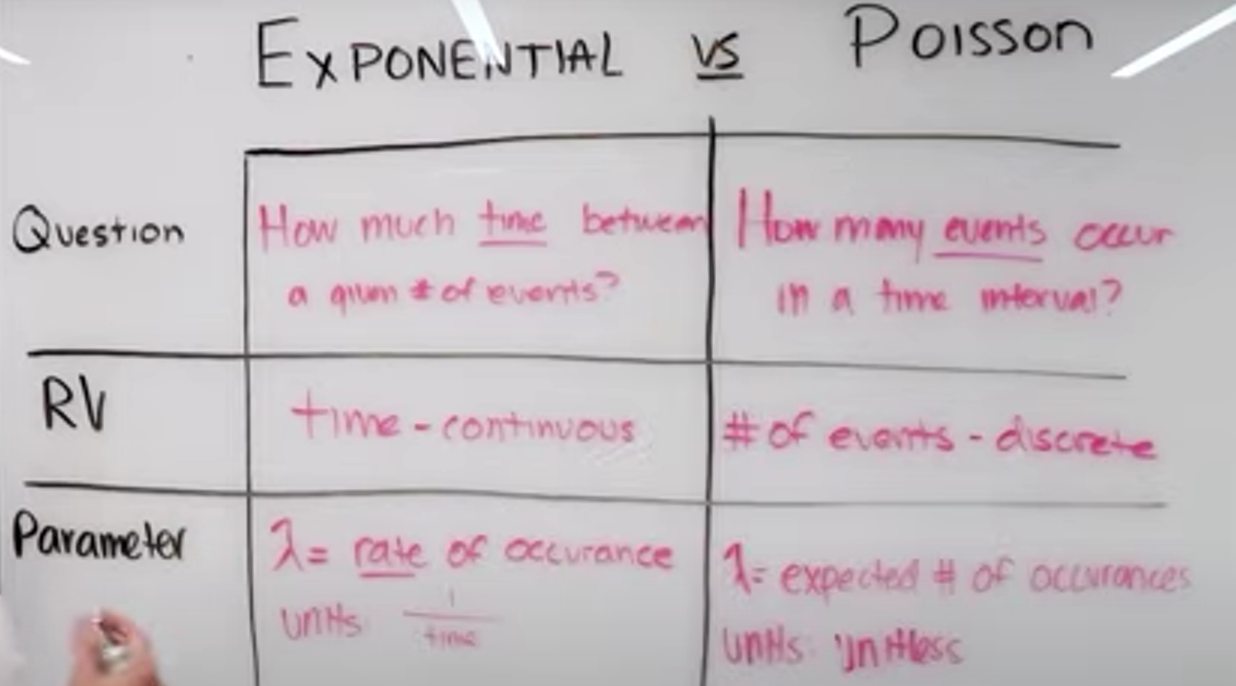 EXPONENTIAL vs Poisson
Question
How much time between
a given # of events?
How many events occur
in a time interval?
RV
time - continuous
# of events - discrete
Parameter
λ = rate of occurance
units 1/time
λ = expected # of occurances
units: unitless